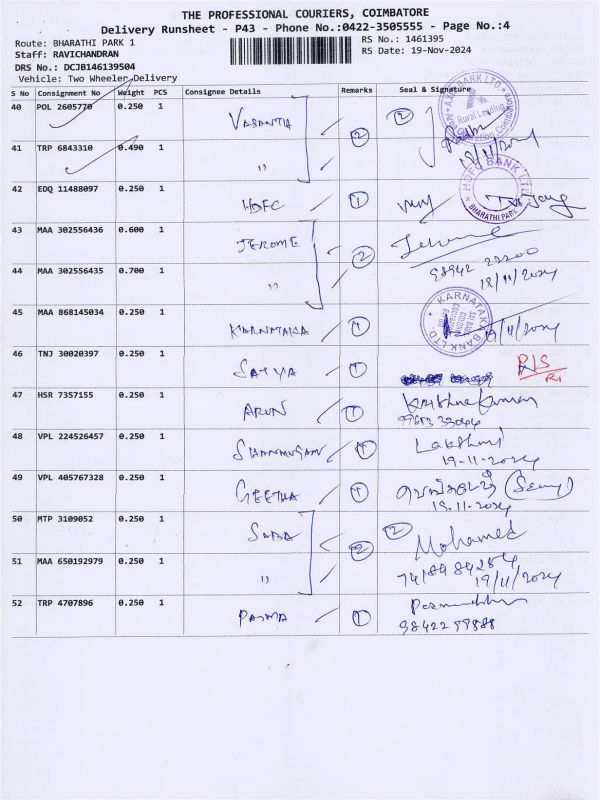 THE PROFESSIONAL COURIERS, COIMBATORE
Delivery Runsheet - P43 - Phone No.:0422-3505555 - Page No.:4
Route: BHARATHI PARK 1
RS No.: 1461395
Staff: RAVICHANDRAN
RS Date: 19-Nov-2024
DRS No.: DCJB146139504
Vehicle: Two Wheeler,Delivery
S No Consignment No Weight PCS Consignee Details Remarks Seal & Signature
40 POL 2605770 0.250 1 VASANTHA 2 2
41 TRP 6843310 0.490 1 "
42 EDQ 11488097 0.250 1 HDFC 1
HDFC BANK LTD.
BHARATHI PARK
43 MAA 302556436 0.600 1 JEROME 2 Jerome
44 MAA 302556435 0.700 1 "
45 MAA 868145034 0.250 1 KARNATAKA 1
KARNATAKA BANK LTD.
46 TNJ 30020397 0.250 1 SATYA 1
47 HSR 7357155 0.250 1 ARUN 1 Krishnakumar
48 VPL 224526457 0.250 1 SHANMUGAM 1 Lakshmi
19-11-2024
49 VPL 405767328 0.250 1 GEETHA 1
50 MTP 3109052 0.250 1 SABA 2 2 Mohamed
51 MAA 650192979 0.250 1 " 19/11/2024
52 TRP 4707896 0.250 1 PADMA 1